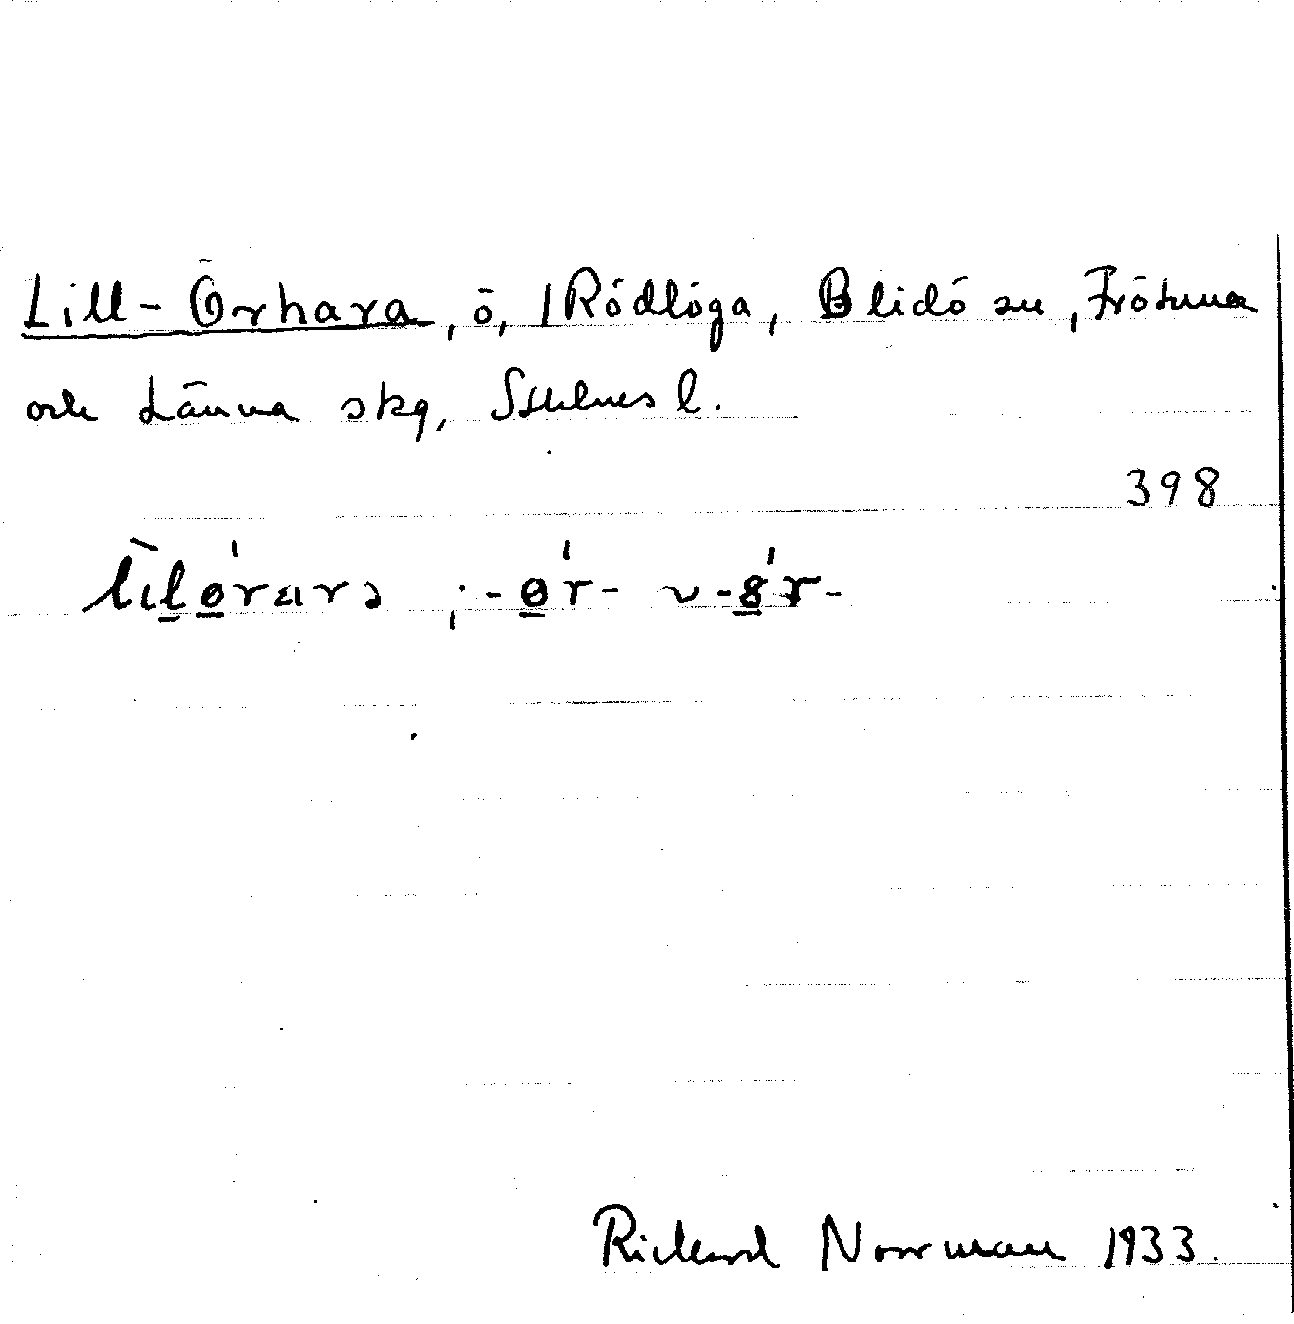 Lill-Örhara, ö, Rödlöga, Blidö sn, Frötuna
och Länna skg, Sthlms l.
398
Richard Norrman 1933.